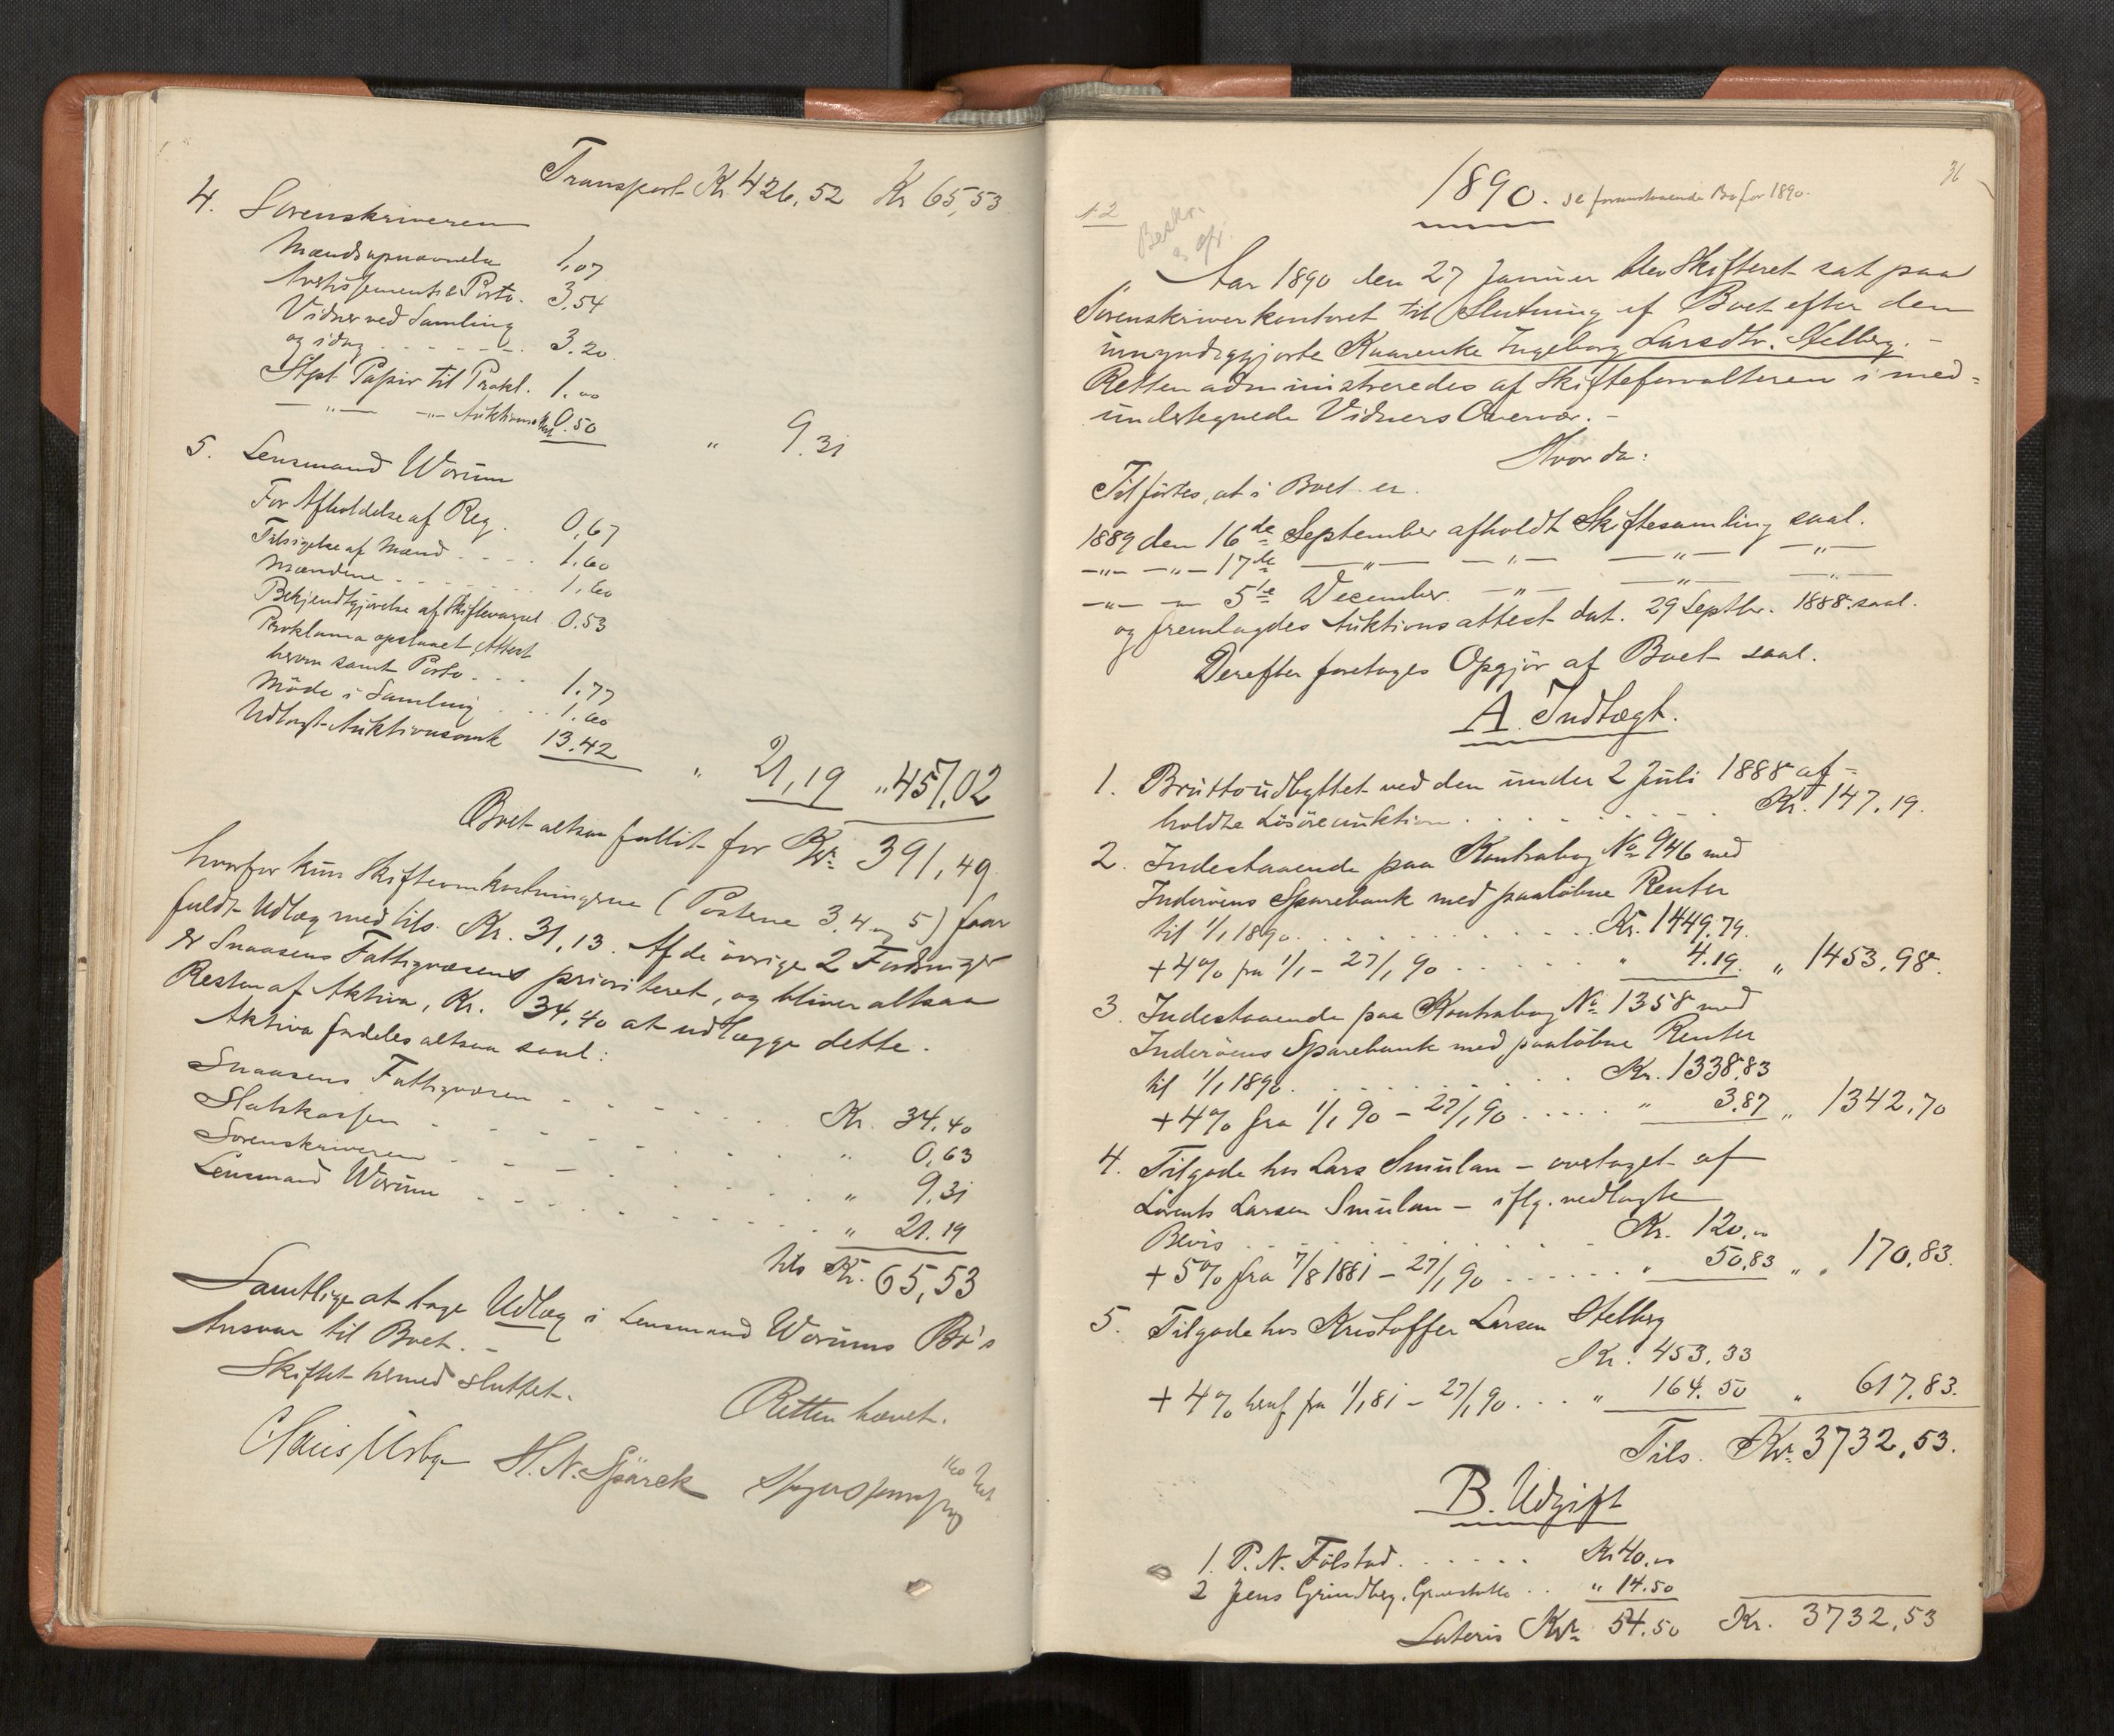 Transport Kr. 426,52 Kr 65,53
4. Sorenskriveren
Mændsopnævnelse 1,07
Avertissements & Porto. 3,54
Vidner ved Samling
og idag 3.20
Stpt Papir til Prokl. 1.00
—"— —"— Auktions 0.50 " 9.31
5. Lensmand Worum
For Afholdelse af Reg. 0,67
Tilsigelse af Mænd 1.60
Mændene 1,60
Bekjendtgjörelse af Skiftevarsel 0.53
Proklama opslaaet, Attest
herom samt Porto 1.77
Möde i Samling 1.60
Udlagt Auktionsomk 13.42 " 21,19 " 457,02
Boet altsaa fallit for Kr. 391,49
hvorfor kun Skifteomkostningerne (Posterne 3.4 og 5) faar
fuldt Udlæg med tils. Kr. 31,13. Af de övrige 2 Fordringer
er Snaasens Fattigvæsens prioriteret, og bliver altsaa
Resten af Aktiva, Kr. 34,40 at udlægge dette.
Aktiva fordeles altsaa saal:
Snaasens Fattigvæsen Kr. 34,40
Statskassen " 0,63
Sorenskriveren " 9,31
Lensmand Worum " 21.19
tils Kr. 65,53
Samtlige at tage Udlæg i Lensmand Worums Bo's
Ansvar til Boet.-
Skiftet hermed sluttet.
Retten hævet.
H. N. Sjärek
36
1890. se foranstaaende Bo for 1890.
42
Beskr.
Aar 1890 den 27 Januar blev Skifteret sat paa
Sorenskriverkontoret til Slutning af Boet efter den
umyndiggjorte Kaarenke Ingeborg Larsdtr. Stelberg.-
Retten administreredes af Skifteforvalteren i med-
undertegnede Vidners Overvær.-
Hvor da:
Tilförtes, at i Boet er
1889 den 16de September afholdt Skiftesamling saal.
—"— —"— 17de —"— —"— —"— —"—
—"— —"— 5te December. —"— —"— —"—
og fremlagdes Auktionsattest dat. 29 Septbr. 1888 saal.
Derefter foretoges Opgjör af Boet saal.
A. Indtægt.
1. Bruttoudbyttet ved den under 2 Juli 1888 af-
holdte Lösöreauktion Kr. 147,19.
2. Indestaaende paa Kontrabog No 946 med
Inderöens Sparebank med paalöbne Renter
til 1/1 1890 Kr. 1449.79.
+ 4% fra 1/1 - 27/1 90 " 4.19. " 1453,98.
3. Indestaaende paa Kontrabog No 1358 med
Inderöens Sparebank med paalöbne Renter
til 1/1 1890. Kr. 1338,83
+ 4% fra 1/1 90 - 27/1 90 " 3.87 " 1342,70
4. Tilgode hos Lars Smulan - overtaget af
Lorents Larsen Smulan - iflg. vedlagte
Bevis Kr. 120.00
+ 5% fra 7/8 1881 - 27/1 90 " 50,83 " 170,83.
5. Tilgode hos Kristoffer Larsen Stelberg
Kr. 453.33
+ 4% heraf fra 1/1 81 - 27/1 90 " 164.50 " 617,83.
Tils. Kr. 3732,53.
B. Udgift
1. P. N. Fölstad Kr 40.00
2 Jens Grindberg, " 14.50
Lateris Kr. 54.50 Kr. 3732,53